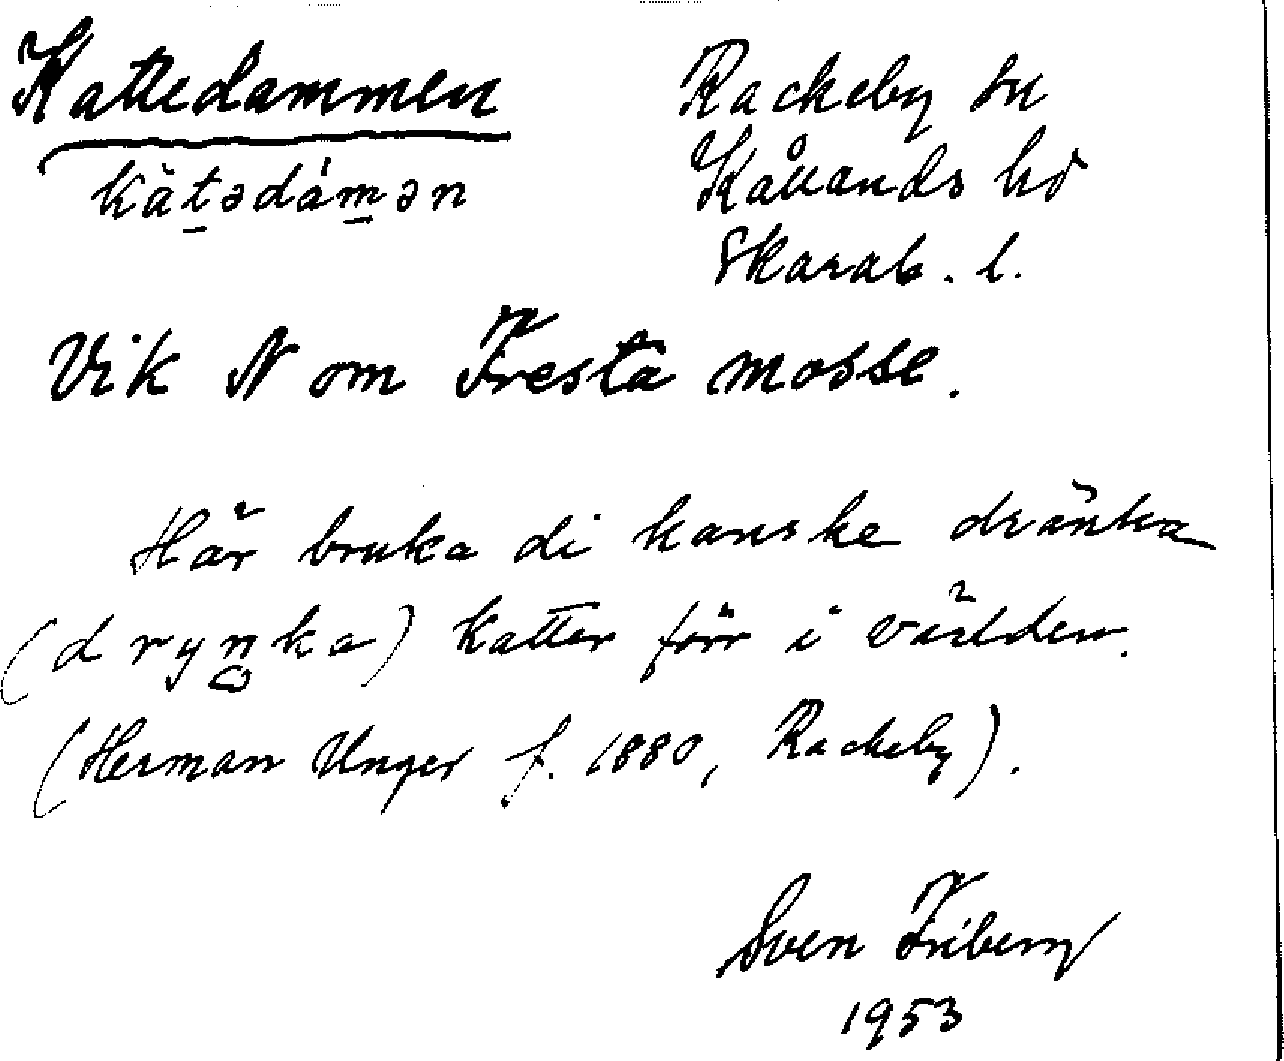 Kattedammen
kàtədámən
Rackeby sn
Kållands hd
Skarab. l.
Vik N om Fresta mosse.
Här bruka di kanske dränka
(drynka) katter förr i världen.
(Herman Unger f. 1880, Rackeby).
Sven Friberg
1953